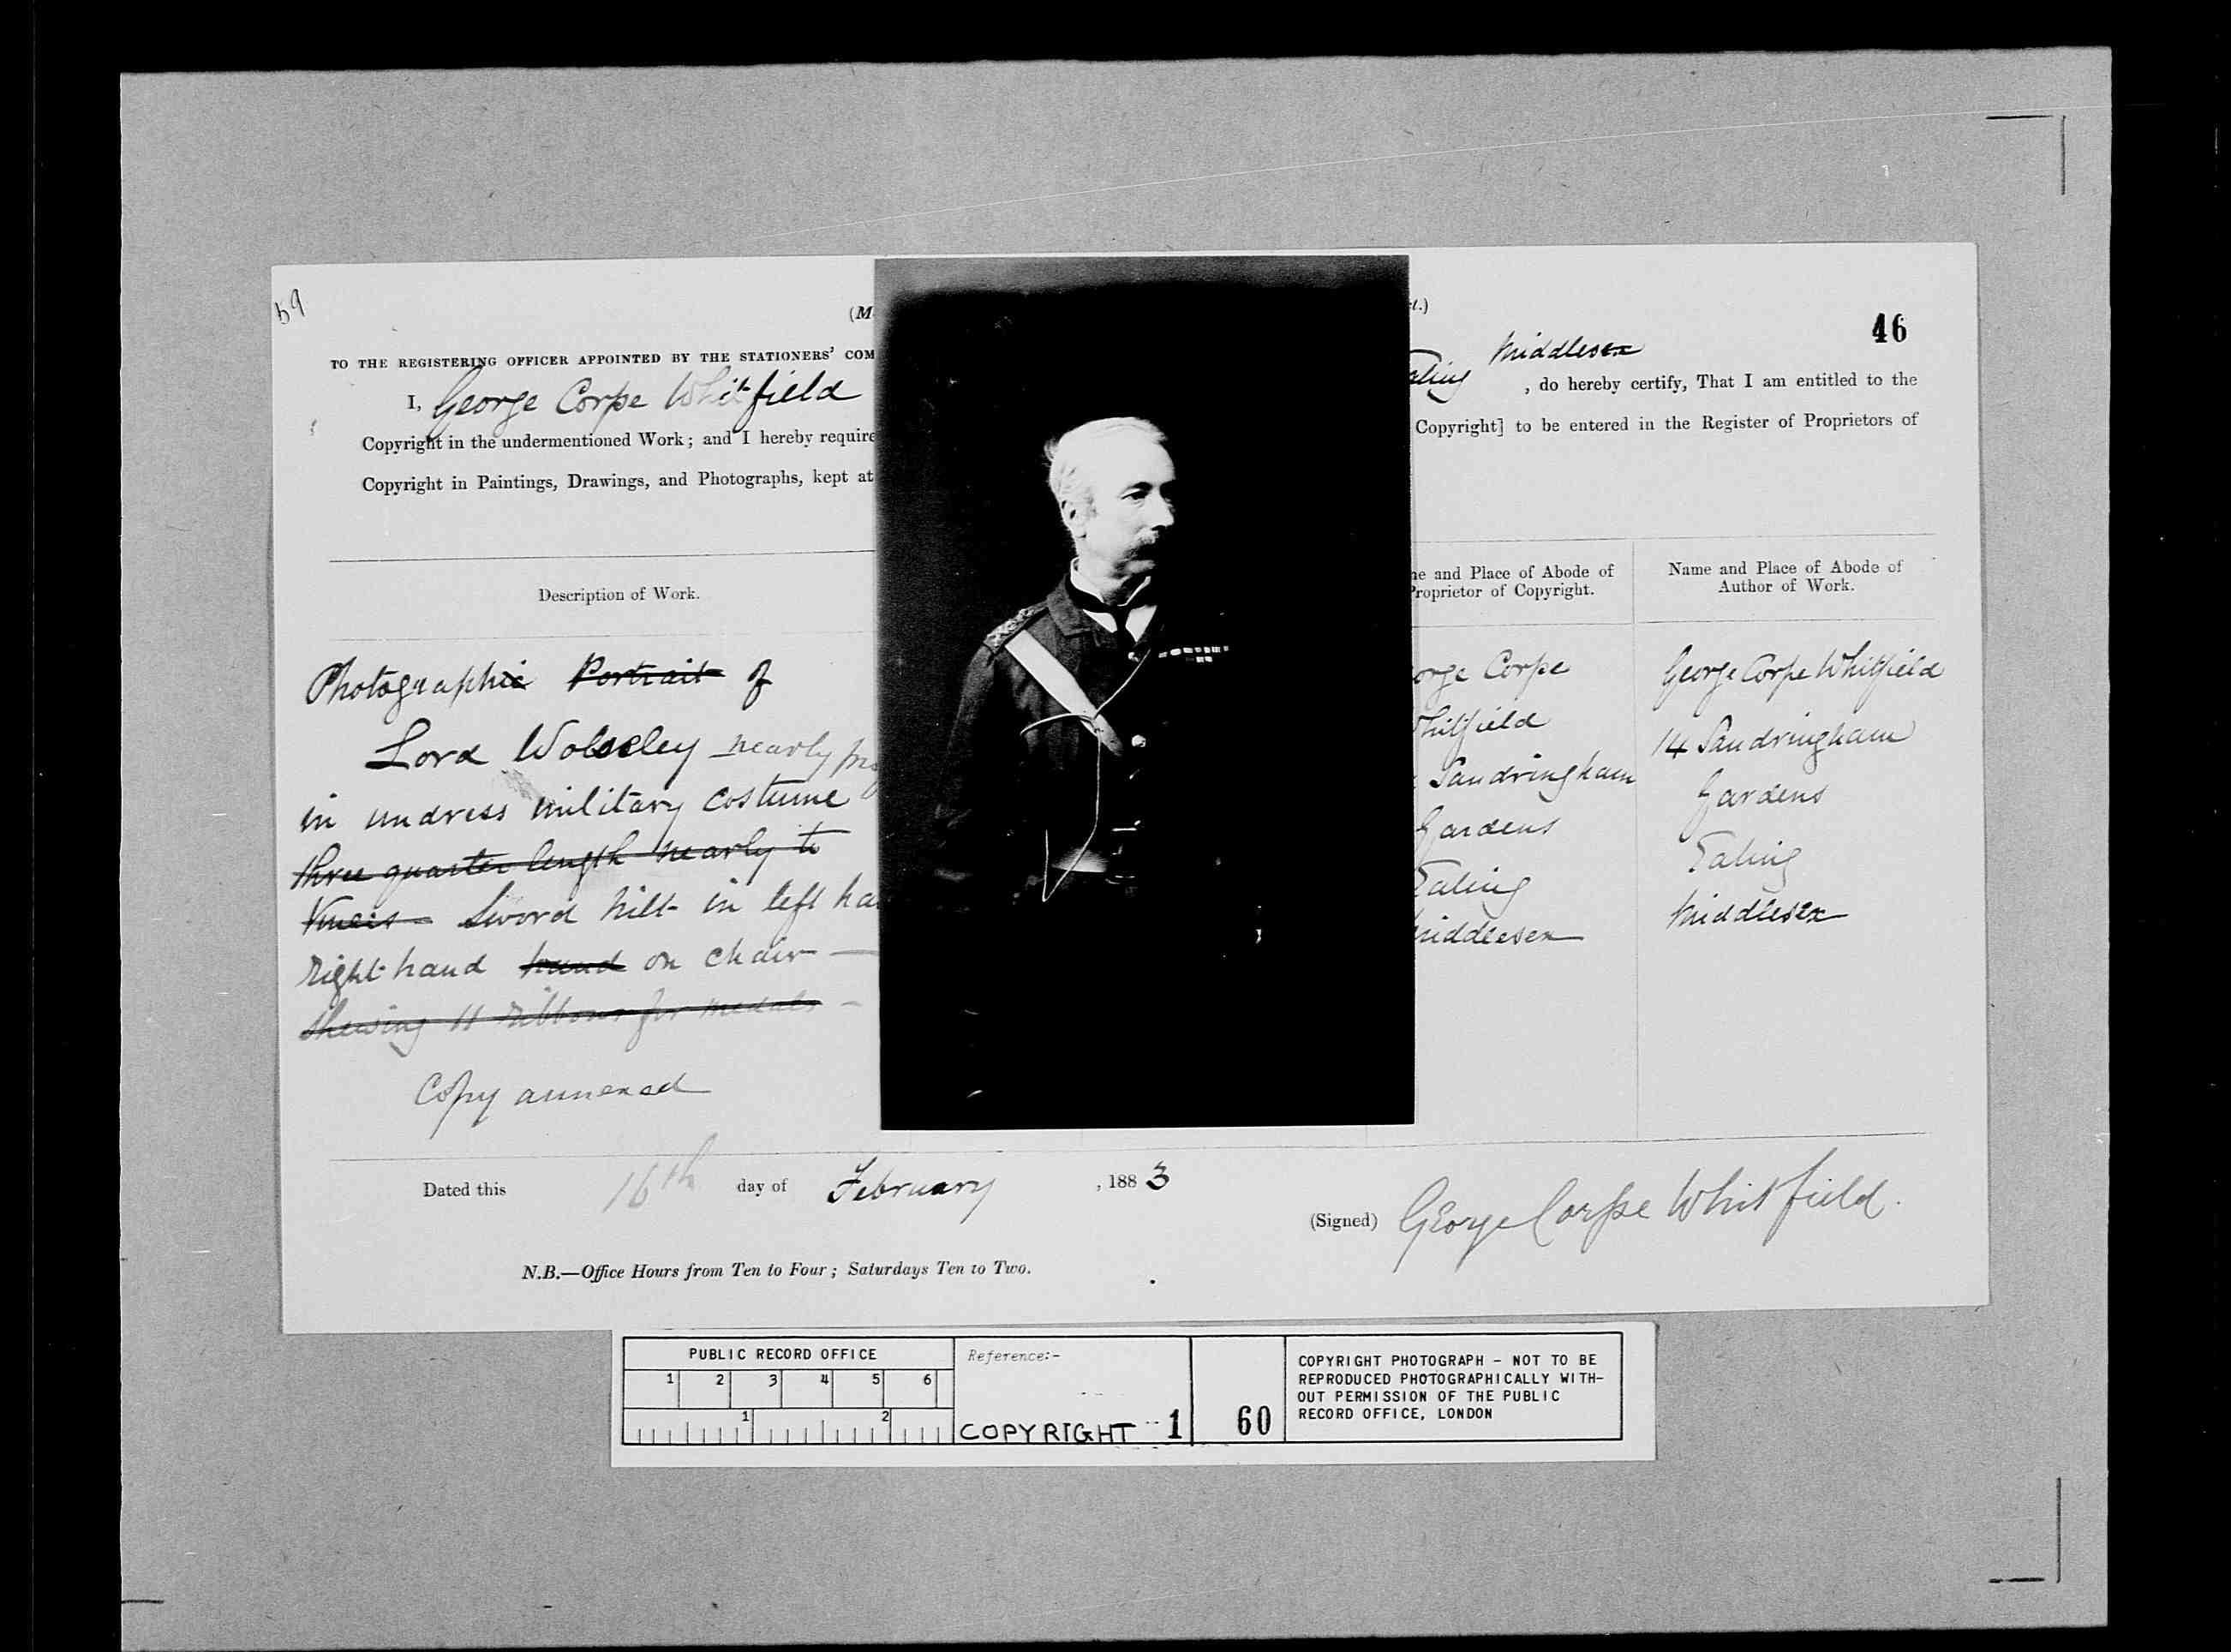 59
(M
t.)
46
TO THE REGISTERING OFFICER APPOINTED BY THE STATIONERS' COM
I, George Corpe Whitfield
aling Middlesex , do hereby certify, That I am entitled to the
Copyright in the undermentioned Work; and I hereby require
Copyright] to be entered in the Register of Proprietors of
Copyright in Paintings, Drawings, and Photographs, kept at
Description of Work.
Photographic Portrait of
Lord Wolseley nearly pro
in undress military costume
three quarter length nearly to
Knees - Sword hilt in left ha
right hand hand on chair —
Shewing 11 ribbons for medals —
Copy annexed
me and Place of Abode of
Proprietor of Copyright.
orge Corpe
Whitfield
Sandringham
Gardens
Ealing
Middlesex
Name and Place of Abode of
Author of Work.
George Corpe Whitfield
14 Sandringham
Gardens
Ealing
Middlesex
Dated this 16th day of February , 1883
(Signed) George Corpe Whitfield.
N.B.—Office Hours from Ten to Four; Saturdays Ten to Two.
PUBLIC RECORD OFFICE
1 2 3 4 5 6
1 2
Reference:-
COPYRIGHT 1
60
COPYRIGHT PHOTOGRAPH - NOT TO BE
REPRODUCED PHOTOGRAPHICALLY WITH-
OUT PERMISSION OF THE PUBLIC
RECORD OFFICE, LONDON